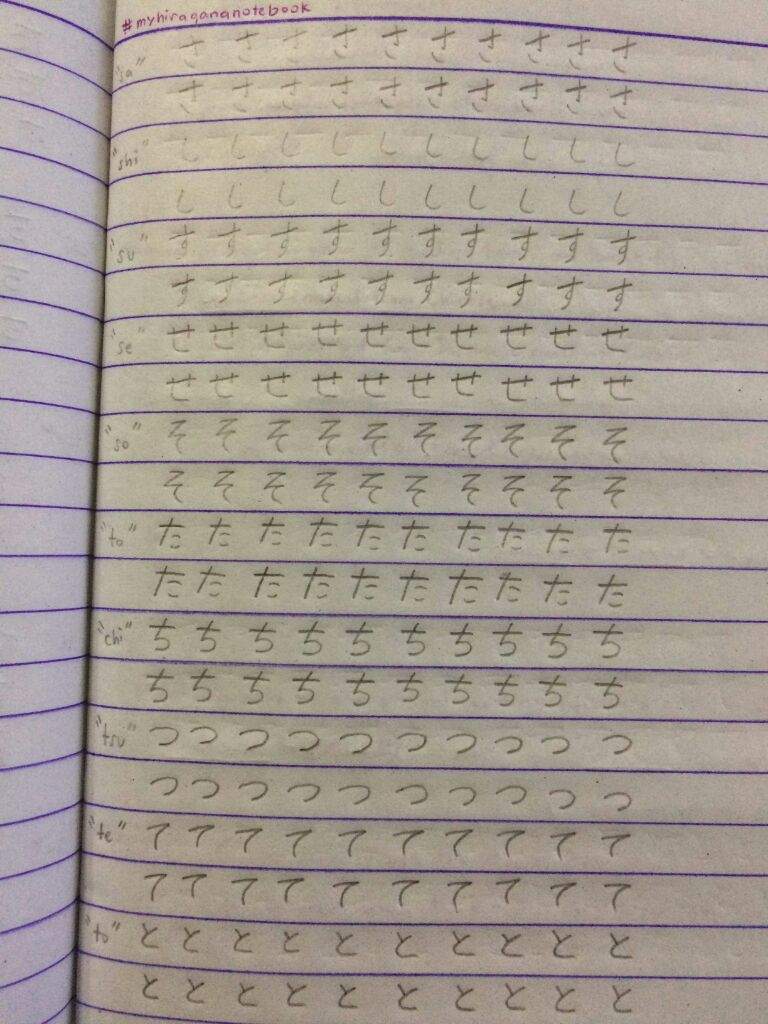 #myhiragananotebook
"sa" さ さ さ さ さ さ さ さ さ さ
さ さ さ さ さ さ さ さ さ さ
"shi" し し し し し し し し し し
し し し し し し し し し し
"su" す す す す す す す す す す
す す す す す す す す す す
"se" せ せ せ せ せ せ せ せ せ せ
せ せ せ せ せ せ せ せ せ せ
"so" そ そ そ そ そ そ そ そ そ そ
そ そ そ そ そ そ そ そ そ そ
"ta" た た た た た た た た た た
た た た た た た た た た た
"chi" ち ち ち ち ち ち ち ち ち ち
ち ち ち ち ち ち ち ち ち ち
"tsu" つ つ つ つ つ つ つ つ つ つ
つ つ つ つ つ つ つ つ つ つ
"te" て て て て て て て て て て
て て て て て て て て て て
"to" と と と と と と と と と と
と と と と と と と と と と